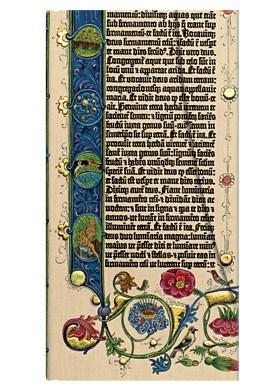 manentum: divisitq; aquas que erāt
sub firmamento ab hijs que erant
firmamentū: et factū ē ita. Vocavitq;
deus firmamentū celū: et factū ē vespe
et mane dies secūd9. Dixit vero deus.
Congregent aque que sub celo sūt in
locū unū et appareat arida. Et factū ē
ita. Et vocavit deus aridam terram:
congregacionesq; aquarum appellavit
maria. Et vidit deus qd esset bonū et
ait. Germinet terra herbā virentem et
facientē semen: et lignū pomiferū
faciēs fructū iuxta genus suū: cui9 semen in
semetipso sit sup terrā. Et factū ē ita. Et
protulit terra herbā virentē et
facientē semē iuxta genus suū: lignūq;
faciēs fructū et habēs unūqdq; sementē
speciē suā. Et vidit deus qd esset bonū:
et factū est vespe et mane dies tercius.
Dixitq; autē deus. Fiant luminaria
in firmamēto celi· et dividāt diem ac
noctem: et sint in signa et tpa et dies et
annos· ut luceāt in firmamēto celi et
illuminēt terrā. Et factū ē ita. Fecitq;
deus duo luminaria magna: lumiare
maius ut pesset diei et lumiare min9
ut pesset nocti: et stellas· et posuit eas in
firmamēto celi ut lucerēt sup terrā: et